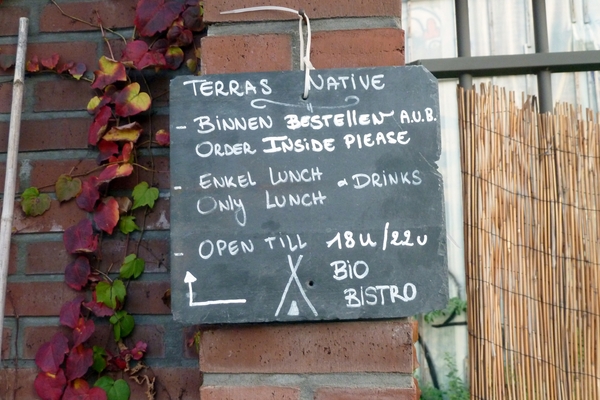 TERRAS NATIVE
- BINNEN BESTELLEN A.U.B.
ORDER INSIDE PLEASE
- ENKEL LUNCH & DRINKS
ONLY LUNCH
- OPEN TILL 18u/22u
BIO
BISTRO